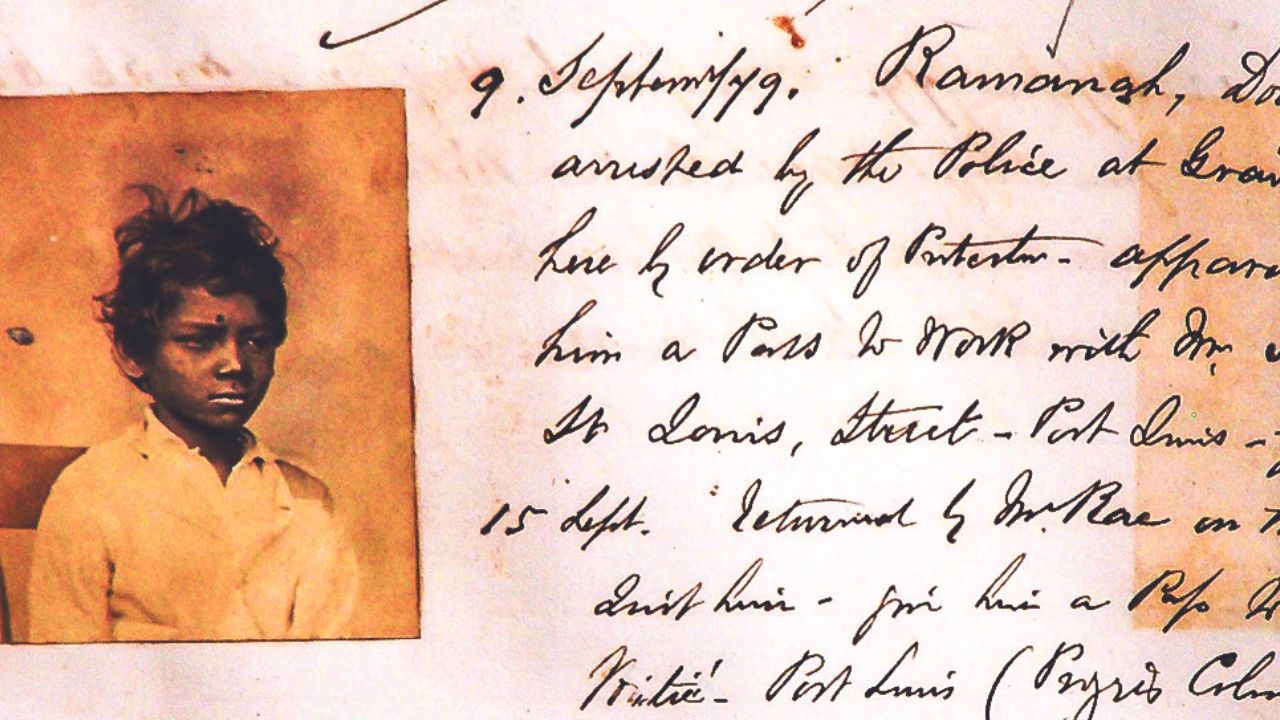 9. Septem/79. Ramangh, Do
arrested by the Police at Gra
here by order of Protector - appar
him a Pass to Work with Mr.
St Louis, Street - Port Louis -
15 Sept. Returned by Mr. Rae on
Quit him - give him a Pass to
Port Louis (